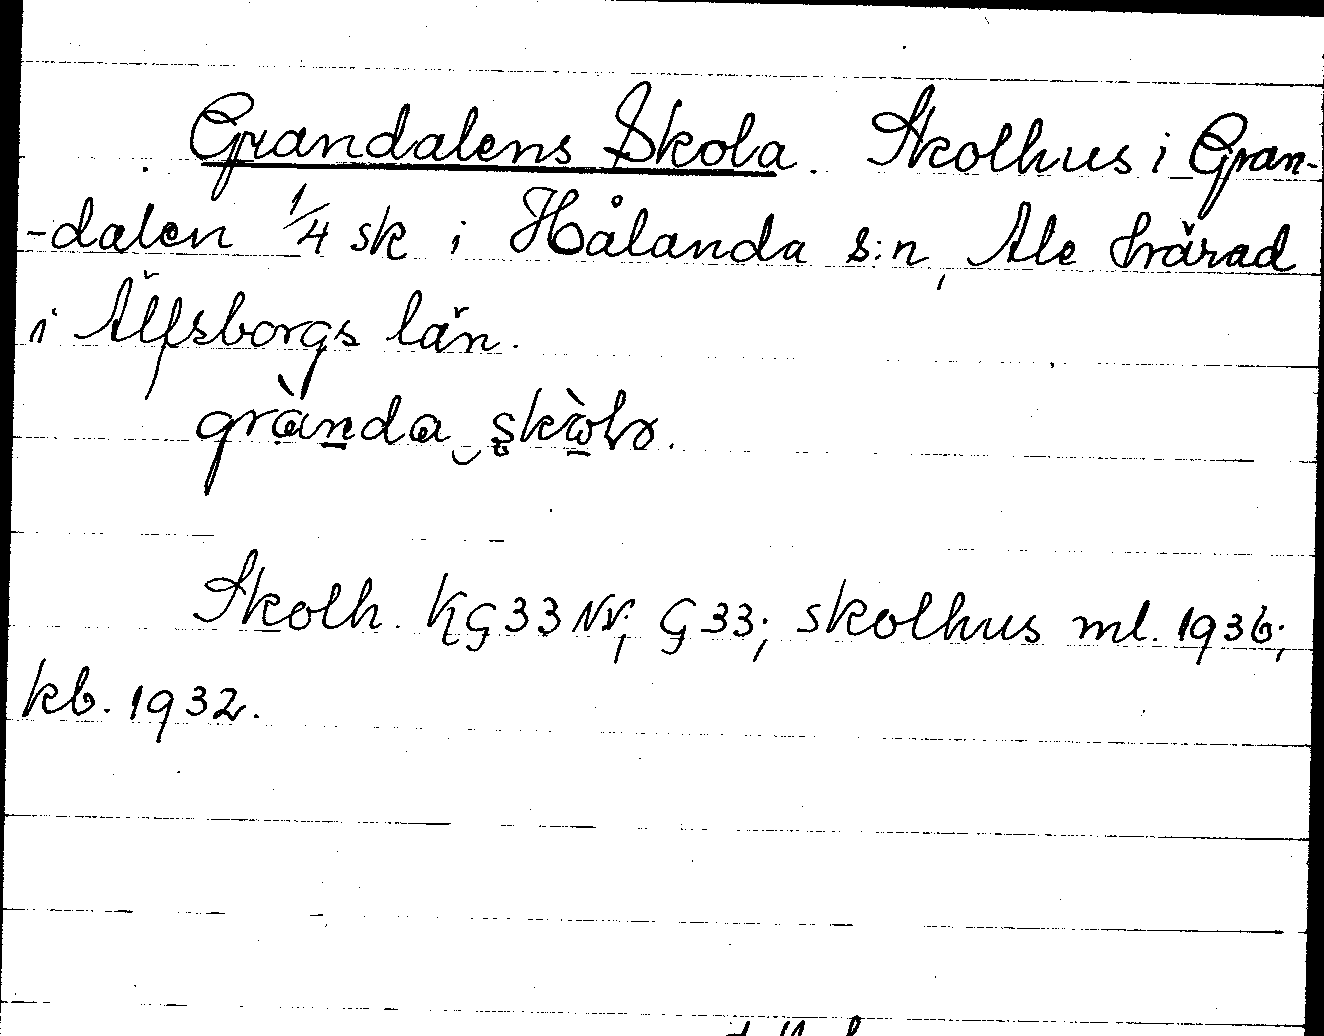 Grandalens Skola. Skolhus i Gran-
-dalen 1/4 sk i Hålanda s:n, Ale härad
i Älfsborgs län.
Skolh. KG33NV; G33; skolhus ml. 1936;
kb. 1932.